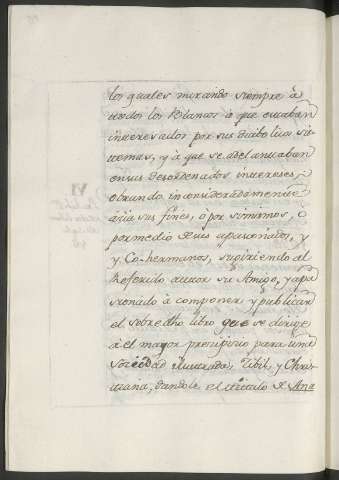 los quales mirando siempre à
todos los Blancos à que estaban
interesados por sus diabolicos sis-
temas, y à que se adelantaban
en sus desordenados intereses,
obrando inconsideradamente
àcia sus fines, ò por si mismos, ò
por medio de sus apasionados, y
y Co-hermanos, supiriendo al
Referido autor su Amigo, y apa
sionado à componer, y publicar
el sobredho libro que se dirije
à el mayor precipicio para una
sociedad ilustrada, Civil, y Chris-
tiana, dandole el titulo de Ana